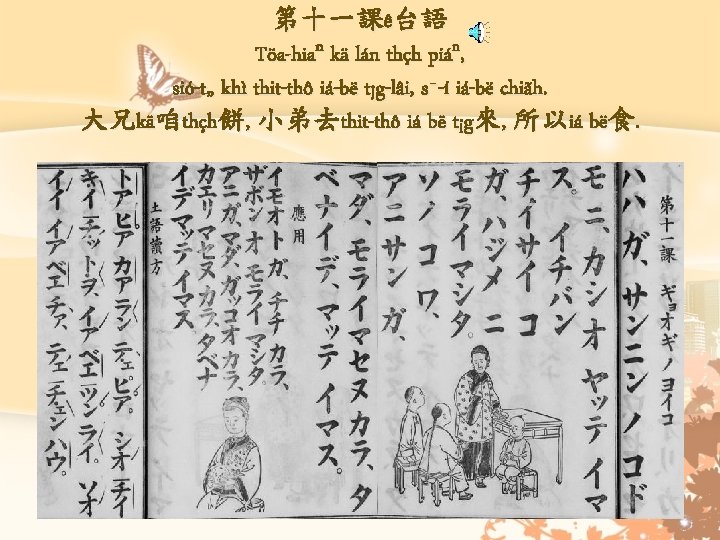 第十一課ê台語
Töa-hiaⁿ kä lán thçh piáⁿ,
sió-t„ khì thit-thô iá-bë tȷg-lâi, s¯-í iá-bë chiãh.
大兄kä咱thçh餅, 小弟去thit-thô iá bë tȷg來, 所以iá bë食.
第十一課 ギョオギノヨイコ
ハハガ、サンニンノコド
モニ、カシオヤッテイマ
ス。イチバン
チイサイコ
ガ、ハジメニ
モライマシタ。
ソノコワ、
アニサンガ、
マダ、モライマセヌカラ、タ
ベナイデ、マッテイマス。
應用
イモオトガ、チチカラ、
ザボンオモライマシタ。
アニガ、マダ、ガッコオカラ、
カエリマセヌカラ、タベナ
イデマッテイマス
土語讀方
トアヒアカアランテェピア。シオチイ
キイチットヲ、イアベエツンライ。ソオ
イイイアベエチァ、テェチェンハウ。